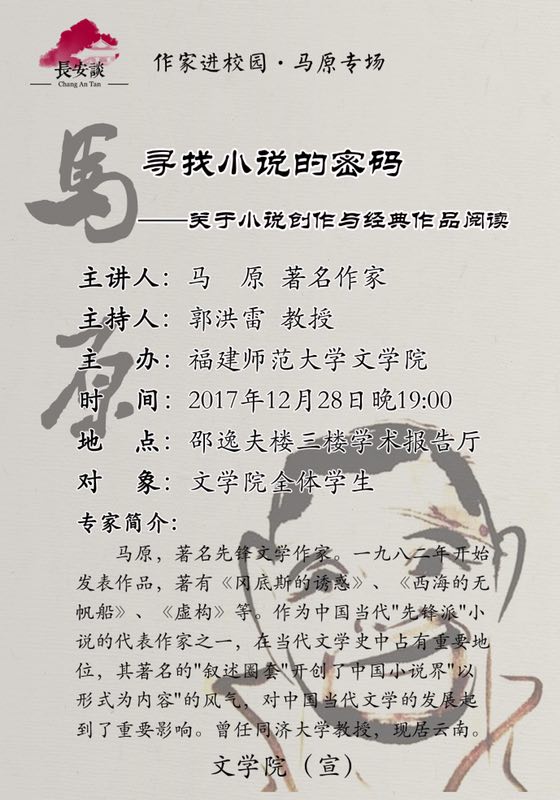 長安談
Chang An Tan
作家进校园·马原专场
馬原
寻找小说的密码
——关于小说创作与经典作品阅读
主讲人：马 原 著名作家
主持人：郭洪雷 教授
主 办：福建师范大学文学院
时 间：2017年12月28日晚19:00
地 点：邵逸夫楼三楼学术报告厅
对 象：文学院全体学生
专家简介：
马原，著名先锋文学作家。一九八二年开始
发表作品，著有《冈底斯的诱惑》、《西海的无
帆船》、《虚构》等。作为中国当代"先锋派"小
说的代表作家之一，在当代文学史中占有重要地
位，其著名的"叙述圈套"开创了中国小说界"以
形式为内容"的风气，对中国当代文学的发展起
到了重要影响。曾任同济大学教授，现居云南。
文学院（宣）